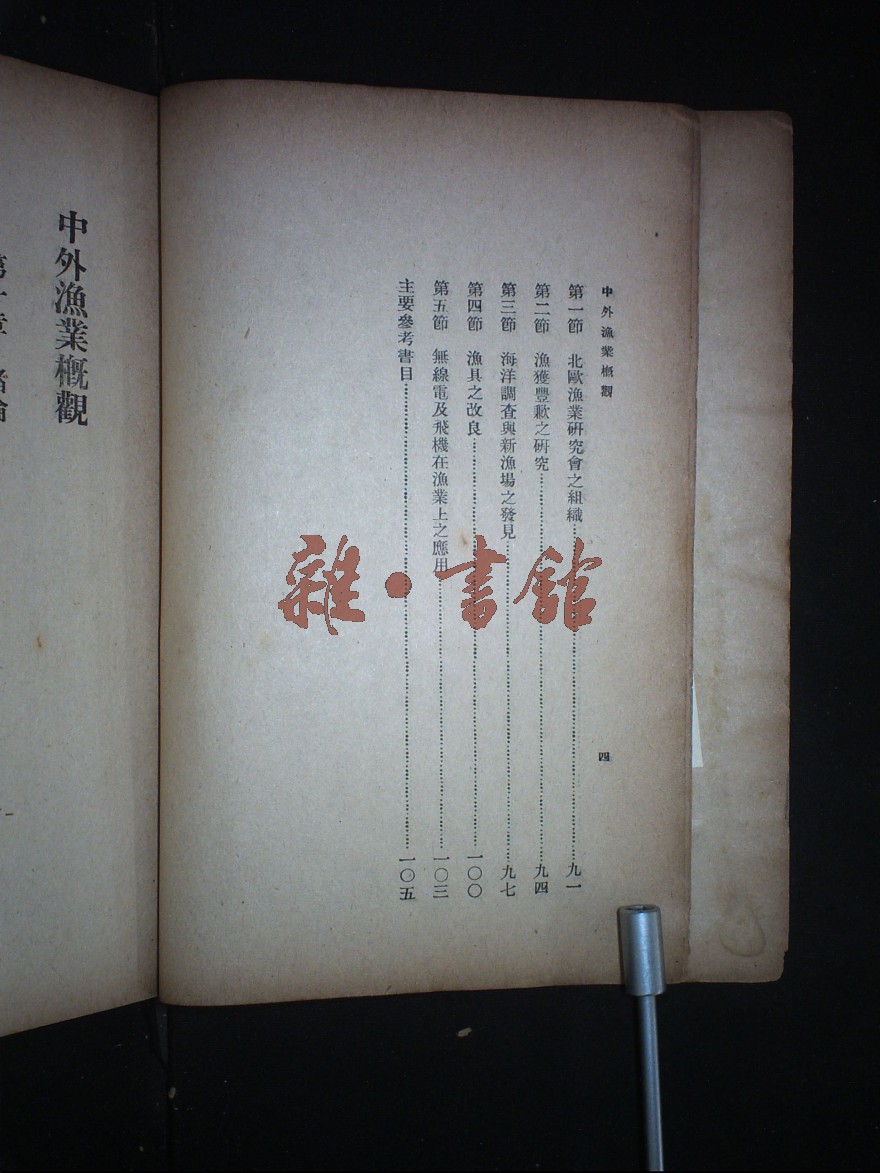 中外漁業概觀
四
第一節　北歐漁業硏究會之組織……九一
第二節　漁獲豐歉之硏究……九四
第三節　海洋調査與新漁場之發見……九七
第四節　漁具之改良……一〇〇
第五節　無線電及飛機在漁業上之應用……一〇三
主要參考書目……一〇五
中外漁業概觀
第一章　緒論
雜·書館